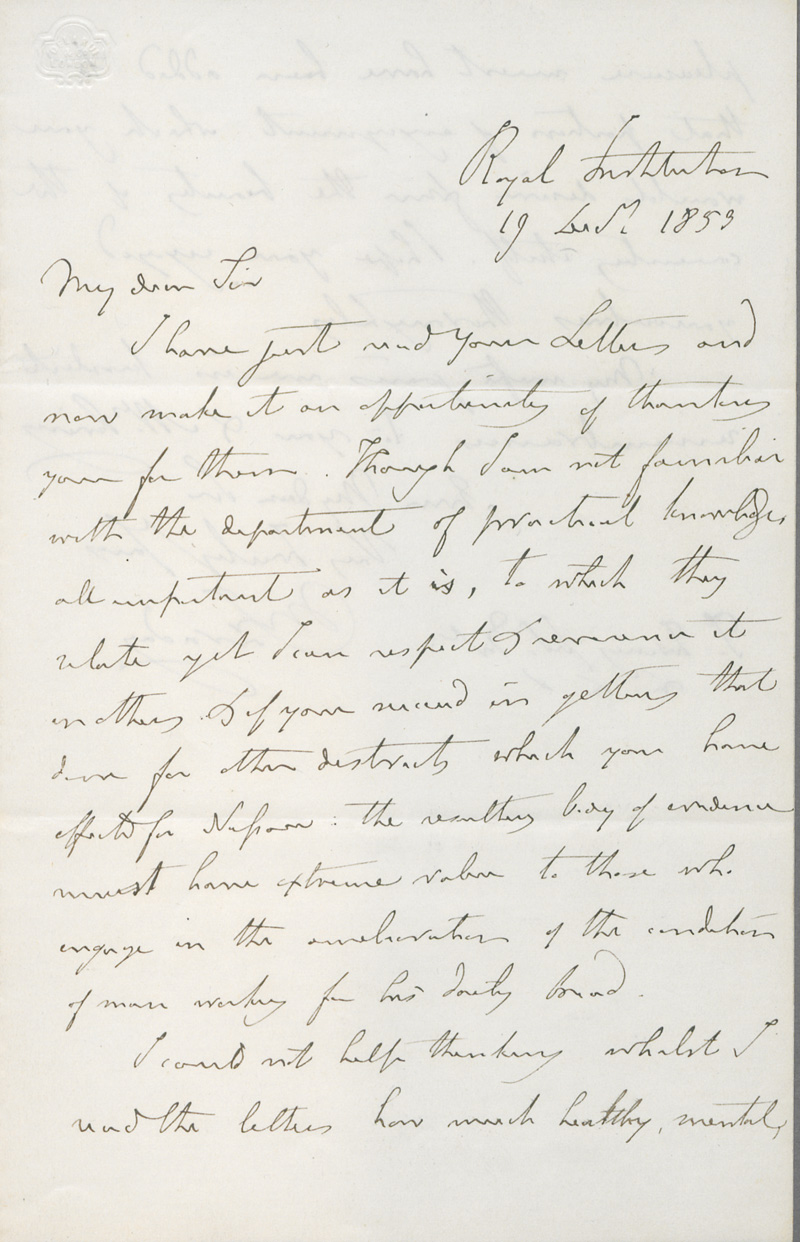 Royal Institution
19 Decr 1853
My dear Sir
I have just read your Letters and
now make it an opportunity of thanking
you for them. Though I am not familiar
with the department of practical knowledge
all important as it is, to which they
relate yet I can respect & reverence it
in others. & if you succeed in getting that
done for other districts which you have
effected for : the resulting body of evidence
must have extreme value to those who
engage in the amelioration of the condition
of man working for his daily bread.
I could not help thinking whilst I
read the letters how much healthy, mental,